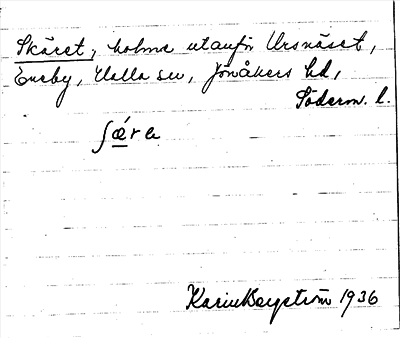 Skäret, holme utanför Ursnäset,
Eneby, Uella sn, Jönåkers hd,
Söderm. l.
ʃǽra
Karin Bergström 1936